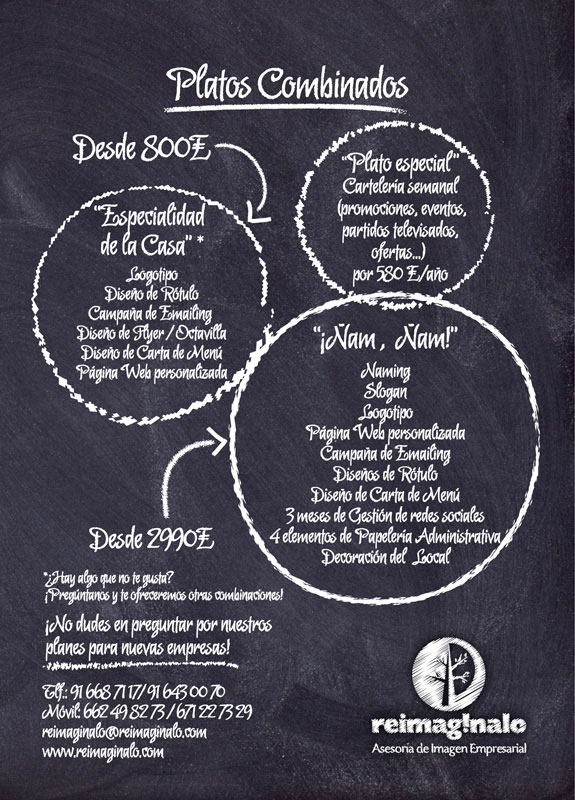 Platos Combinados
Desde 800€
"Especialidad
de la Casa" *
Logotipo
Diseño de Rótulo
Campaña de Emailing
Diseño de Flyer / Octavilla
Diseño de Carta de Menú
Página Web personalizada
"Plato especial"
Cartelería semanal
(promociones, eventos,
partidos televisados,
ofertas...)
por 580 €/año
"¡Nam, Nam!"
Naming
Slogan
Logotipo
Página Web personalizada
Campaña de Emailing
Diseños de Rótulo
Diseño de Carta de Menú
3 meses de Gestión de redes sociales
4 elementos de Papelería Administrativa
Decoración del Local
Desde 2990€
*¿Hay algo que no te gusta?
¡Pregúntanos y te ofreceremos otras combinaciones!
¡No dudes en preguntar por nuestros
planes para nuevas empresas!
Tlf.: 91 668 71 17/ 91 643 00 70
Móvil: 662 49 82 73 / 671 22 73 29
reimaginalo@reimaginalo.com
www.reimaginalo.com
reimag!nalo
Asesoría de Imagen Empresarial